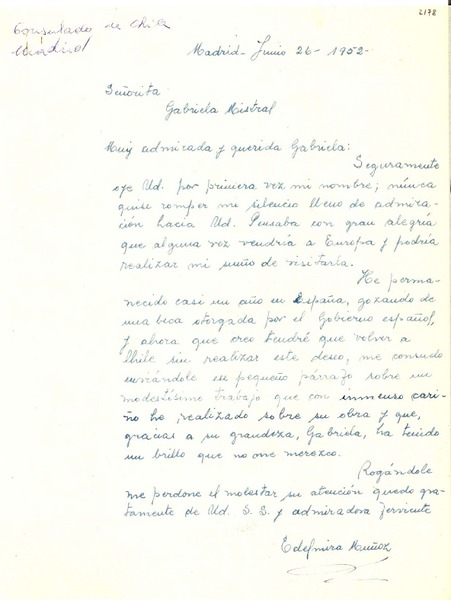 2178
Consulado de Chile
Madrid
Madrid - Junio 26 - 1952 -
Señorita
Gabriela Mistral
Muy admirada y querida Gabriela:
Seguramente
oye Ud. por primera vez mi nombre; núnca
quise romper me silencio lleno de admira-
ción hacia Ud. Pensaba con gran alegría
que alguna vez vendría a Europa y podría
realizar mi sueño de visitarla.
He perma-
necido casi un año en España, gozando de
una beca otorgada por el Gobierno español,
y ahora que creo tendré que volver a
Chile sin realizar este deseo, me consuelo
enviándole ese pequeño párrafo sobre un
modestísimo trabajo que con inmenso cari-
ño he realizado sobre su obra y que,
gracias a su grandeza, Gabriela, ha tenido
un brillo que no me merezco.
Rogándole
me perdone el molestar su atención quedo gra-
tamente de Ud. S. S. y admiradora ferviente
Edelmira Muñoz